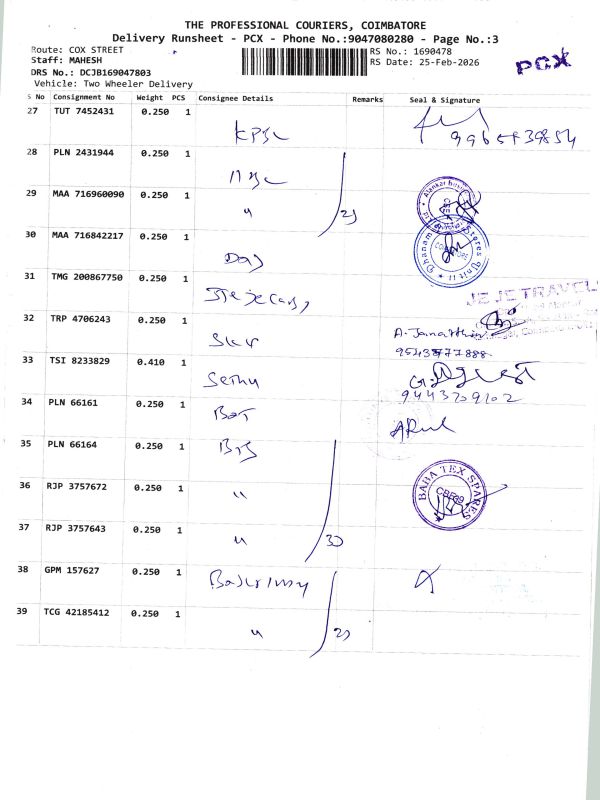 THE PROFESSIONAL COURIERS, COIMBATORE
Delivery Runsheet - PCX - Phone No.:9047080280 - Page No.:3
Route: COX STREET
Staff: MAHESH
DRS No.: DCJB169047803
Vehicle: Two Wheeler Delivery
RS No.: 1690478
RS Date: 25-Feb-2026
PCX
S No Consignment No Weight PCS Consignee Details Remarks Seal & Signature
27 TUT 7452431 0.250 1
28 PLN 2431944 0.250 1
29 MAA 716960090 0.250 1 "
30 MAA 716842217 0.250 1
31 TMG 200867750 0.250 1
JEJE TRAVEL
32 TRP 4706243 0.250 1
33 TSI 8233829 0.410 1 Sethu
9443209102
34 PLN 66161 0.250 1
35 PLN 66164 0.250 1
BABA TEX SPARES
36 RJP 3757672 0.250 1 "
37 RJP 3757643 0.250 1 "
30
38 GPM 157627 0.250 1
39 TCG 42185412 0.250 1 "